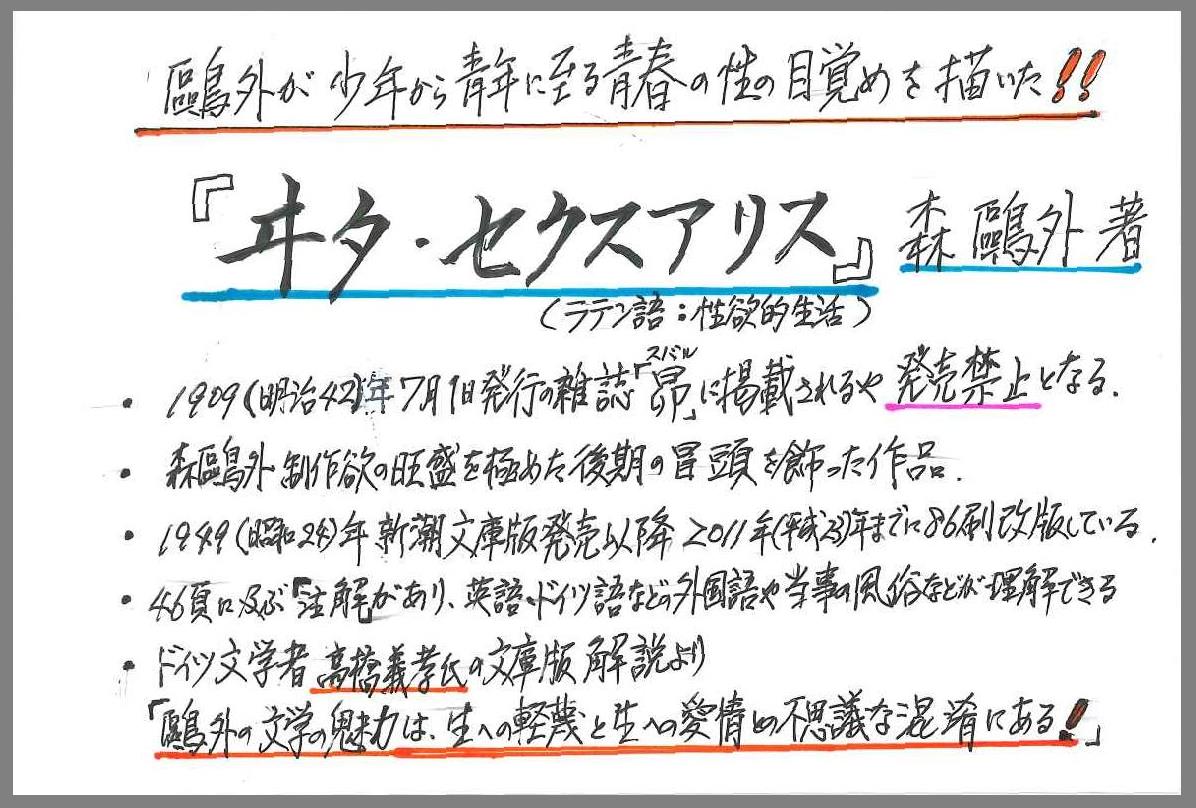 鷗外が少年から青年に至る青春の性の目覚めを描いた!!
『ヰタ・セクスアリス』 森鷗外 著
(ラテン語：性欲的生活)
スバル
・1909(明治42)年7月1日発行の雑誌「昴」に掲載されるや 発売禁止となる.
・森鷗外 制作欲の旺盛を極めた後期の冒頭を飾った作品.
・1949(昭和24)年 新潮文庫版発売以降 2011年(平成23)年までに86刷改版している.
・46頁に及ぶ「注解」があり、英語・ドイツ語などの外国語や当事の風俗などが理解できる
・ドイツ文学者 高橋義孝氏の文庫版 解説より
「鷗外の文学の魅力は、生への軽蔑と生への愛情との不思議な混淆にある!」